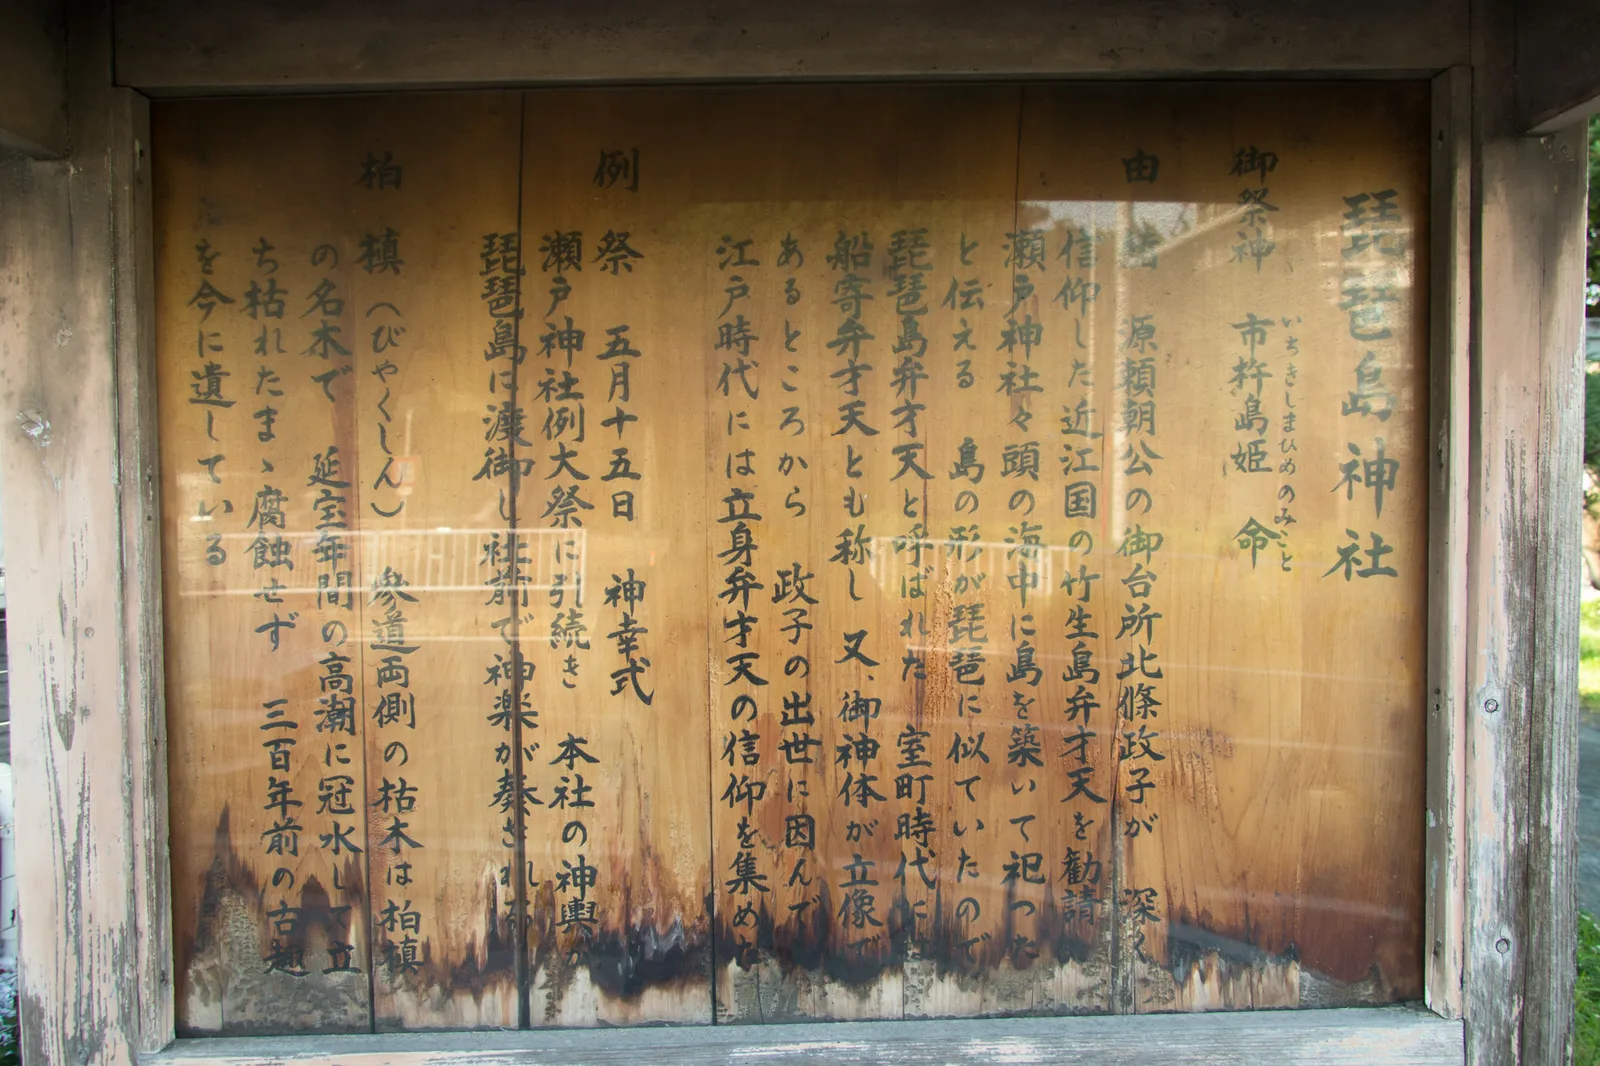 琵琶島神社
御祭神　市杵島姫　命
いちきしまひめのみこと
由　緒　源頼朝公の御台所北條政子が　深く
信仰した近江国の竹生島弁才天を勧請
瀬戸神社々頭の海中に島を築いて祀った
と伝える　島の形が琵琶に似ていたので
琵琶島弁才天と呼ばれた　室町時代に
船寄弁才天とも称し　又、御神体が立像で
あるところから　政子の出世に因んで
江戸時代には立身弁才天の信仰を集めた
例　祭　五月十五日　神幸式
瀬戸神社例大祭に引続き　本社の神輿が
琵琶島に渡御し社前で神楽が奏される
柏　槙（びゃくしん）　参道両側の枯木は柏槙
の名木で　延宝年間の高潮に冠水して立
ち枯れたまゝ腐蝕せず　三百年前の古趣
を今に遺している